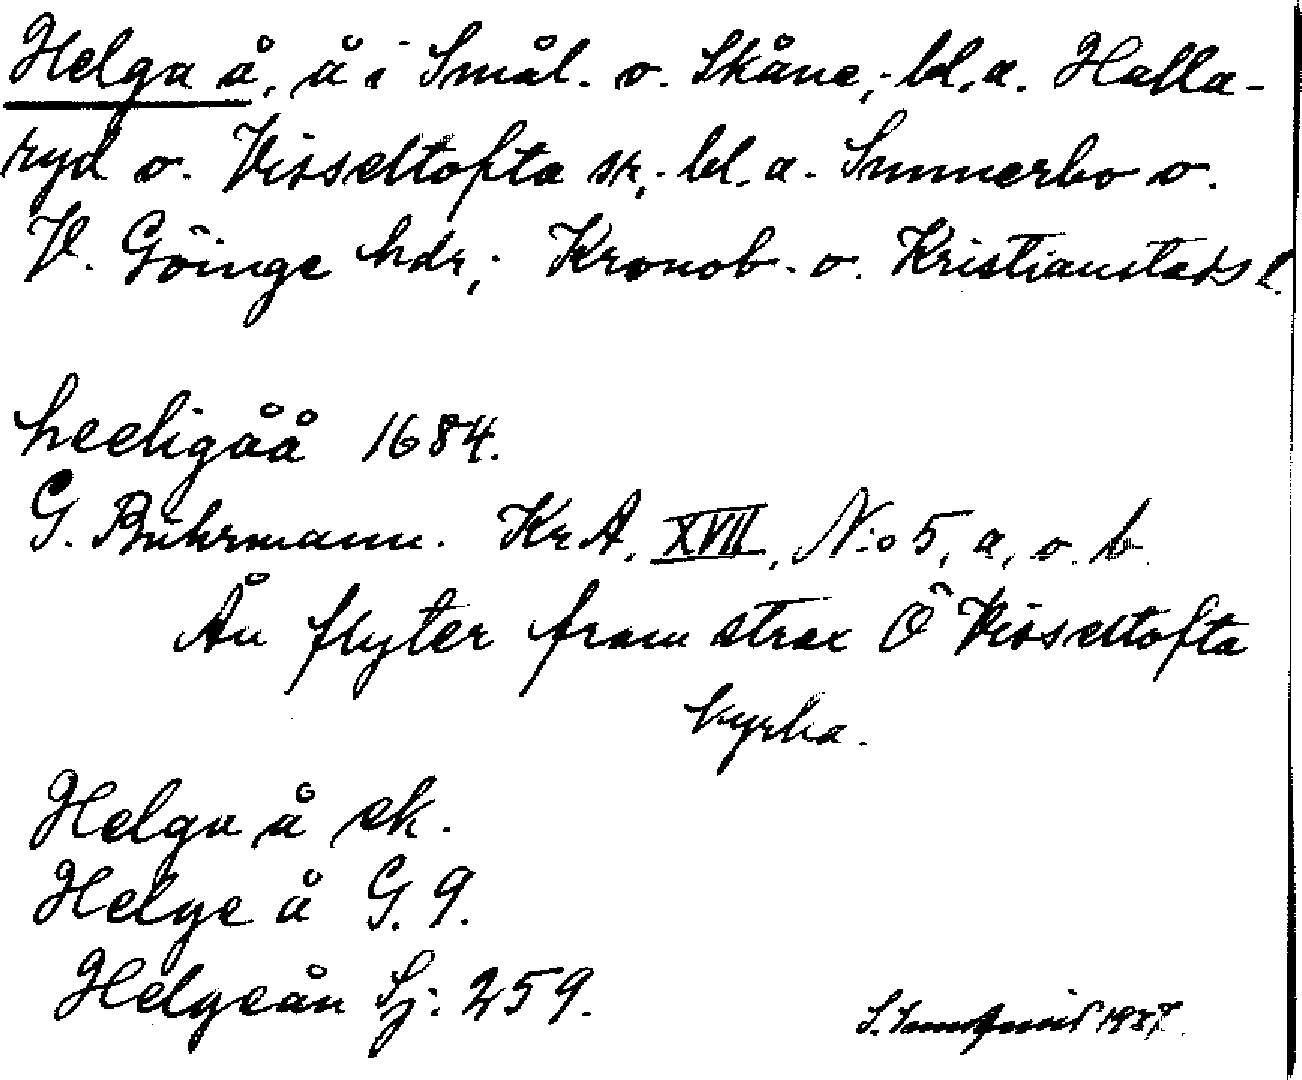 Helga å, å i Smål. o. Skåne, bl. a. Halla-
ryd o. Visseltofta sk, bl. a. Sunnerbo o.
V. Göinge hdr, Kronob. o. Kristianstads l.
heeligåå 1684.
G. Buhrmann. KrA, XVII, N:o 5, a, o. b.
Ån flyter fram strax Ö Visseltofta
kyrka.
Helga å ek.
Helge å G. 9.
Helgeån Sj: 259.
1937